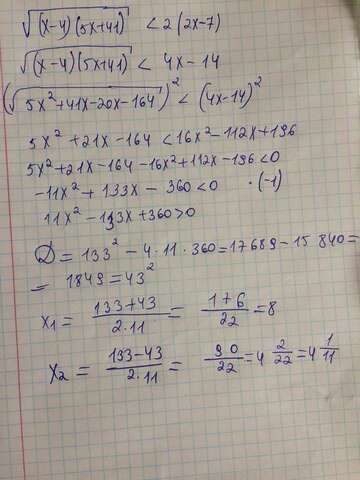 √((x-4)(5x+41)) < 2(2x-7)
√((x-4)(5x+41)) < 4x-14
(√(5x²+41x-20x-164))² < (4x-14)²
5x²+21x-164 < 16x²-112x+196
5x²+21x-164-16x²+112x-196<0
-11x²+133x-360<0 ·(-1)
11x²-133x+360>0
D = 133²-4·11·360=17689-15840=
= 1849=43²
x₁ = (133+43)/(2·11) = 176/22 = 8
x₂ = (133-43)/(2·11) = 90/22 = 4 2/22 = 4 1/11